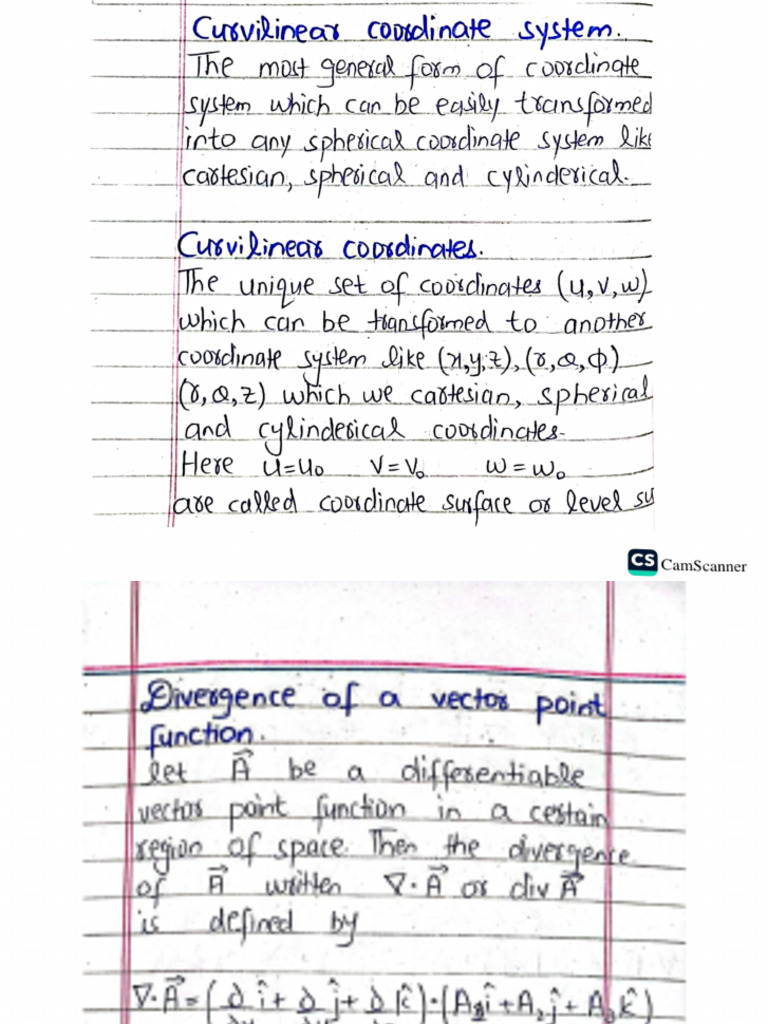 Curvilinear coordinate system.
The most general form of coordinate
system which can be easily transformed
into any spherical coordinate system like
cartesian, spherical and cylinderical.
Curvilinear coordinates.
The unique set of coordinates (u,v,w)
which can be transformed to another
coordinate system like (x,y,z), (r,θ,φ)
(r,θ,z) which we cartesian, spherical
and cylinderical coordinates.
Here u=u₀ v=v₀ w=w₀
are called coordinate surface or level su
CS CamScanner
Divergence of a vector point
function.
let A⃗ be a differentiable
vector point function in a certain
region of space. Then the divergence
of A⃗ written ∇·A⃗ or div A⃗
is defined by
∇·A⃗=(∂ î+ ∂ ĵ+ ∂ k̂)·(A₁î+A₂ĵ+A₃k̂)